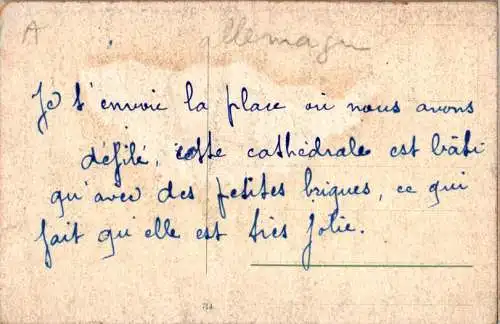 A
allemagne
Je t'envoie la place où nous avons
défilé, cette cathédrale est bâti
qu'avec des petites briques, ce qui
fait qu'elle est très jolie.